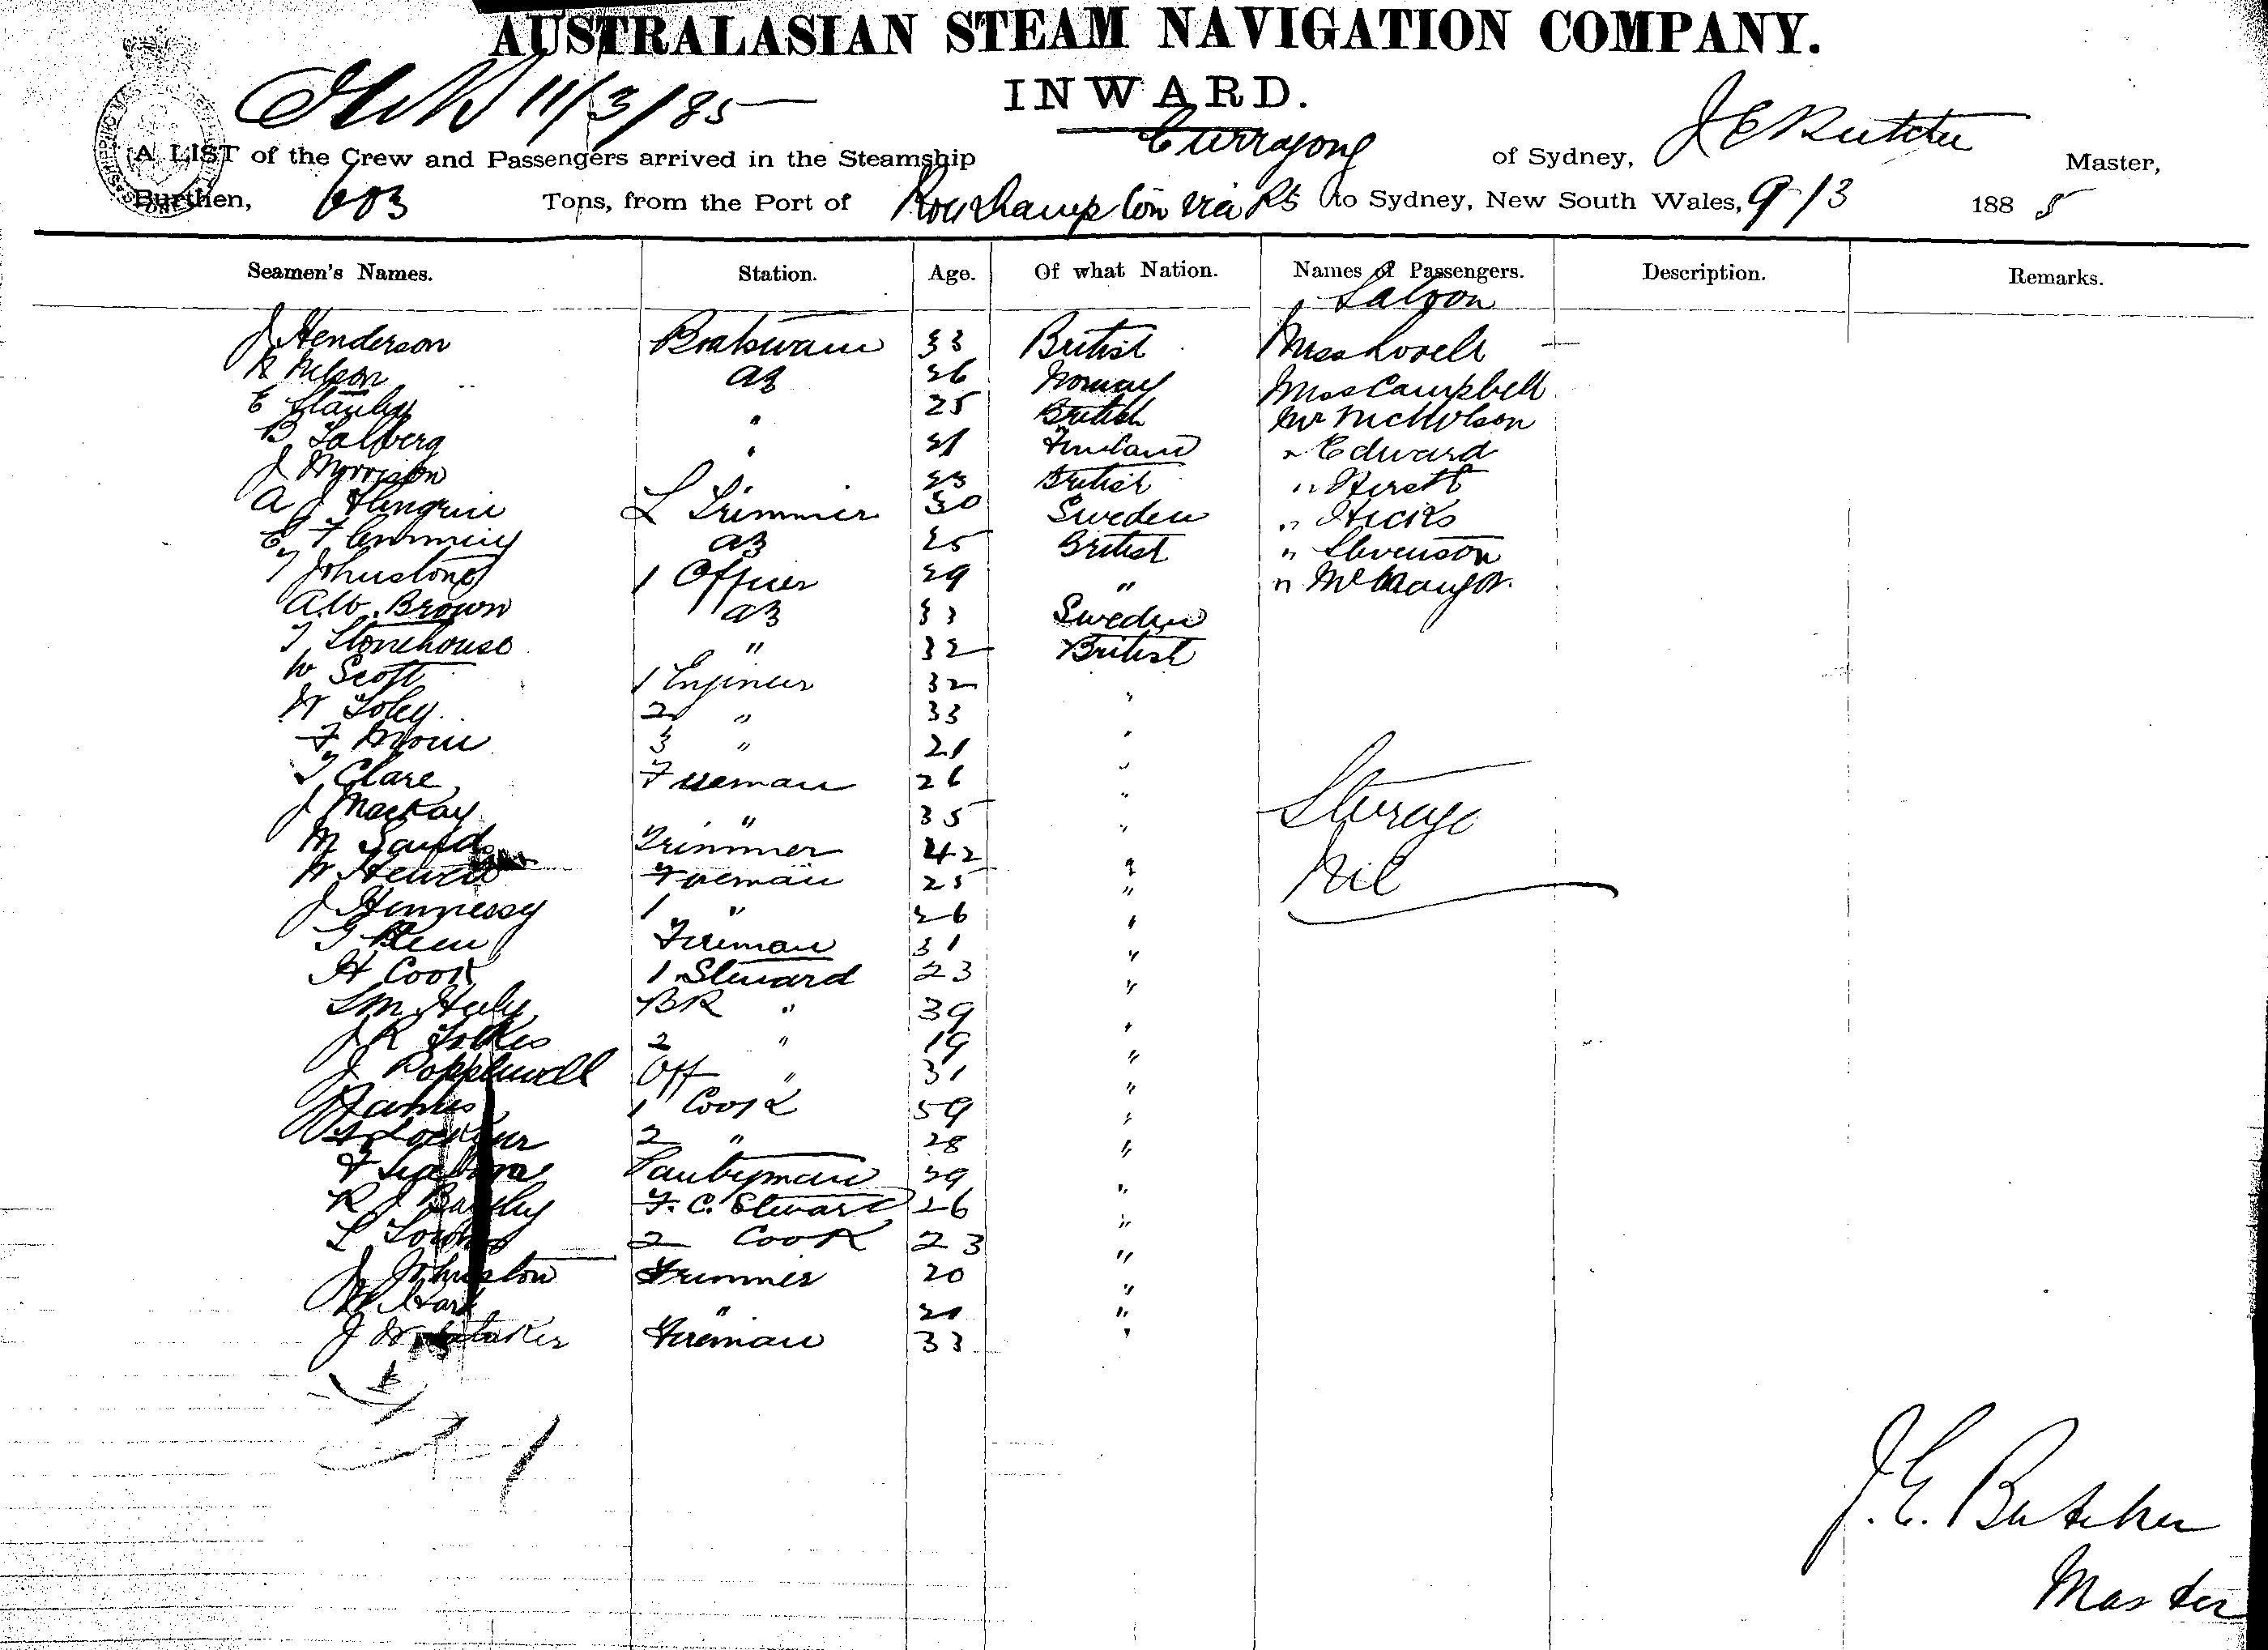 AUSTRALASIAN STEAM NAVIGATION COMPANY.
INWARD.
11/3/85
A LIST of the Crew and Passengers arrived in the Steamship Currajong of Sydney, J E Butcher Master,
Burthen, 603 Tons, from the Port of Rockhampton via Pts to Sydney, New South Wales, 9/3 1885
Seamen's Names. Station. Age. Of what Nation. Names of Passengers. Description. Remarks.
Saloon
J Henderson Boatswain 33 British Miss Lovell
N Nelson AB 26 Norway Miss Campbell
E Stanley " 25 British Mr Nicholson
B Salberg " 21 Finland " Edward
J Morrison 23 British " Hirst
A J L Trimmer 30 Sweden " Hicks
E Flemming AB 25 British " Stevenson
T Johnstone 1 Officer 29 " "
A.W. Brown AB 33 Sweden
T Stonehouse " 32 British
W Scott 1 Engineer 32 "
W Foley 2 " 33 "
F 3 " 21 "
T Clare Fireman 26 "
J Mackay " 35 "
Steerage
M Sands Trimmer 42 "
Nil
W Fireman 25 "
J Hennessy 1 " 26 "
T Fireman 31 "
H Cook 1 Steward 23 "
Healy BR " 39 "
J R 2 " 19 "
J Popplewell Off " 31 "
1 Cook 59 "
2 " 28 "
F Pantryman 29 "
R J F. C. Steward 26 "
L 2 Cook 23 "
J Johnston Trimmer 20 "
W " 21 "
J Fireman 33 "
J. E. Butcher
Master